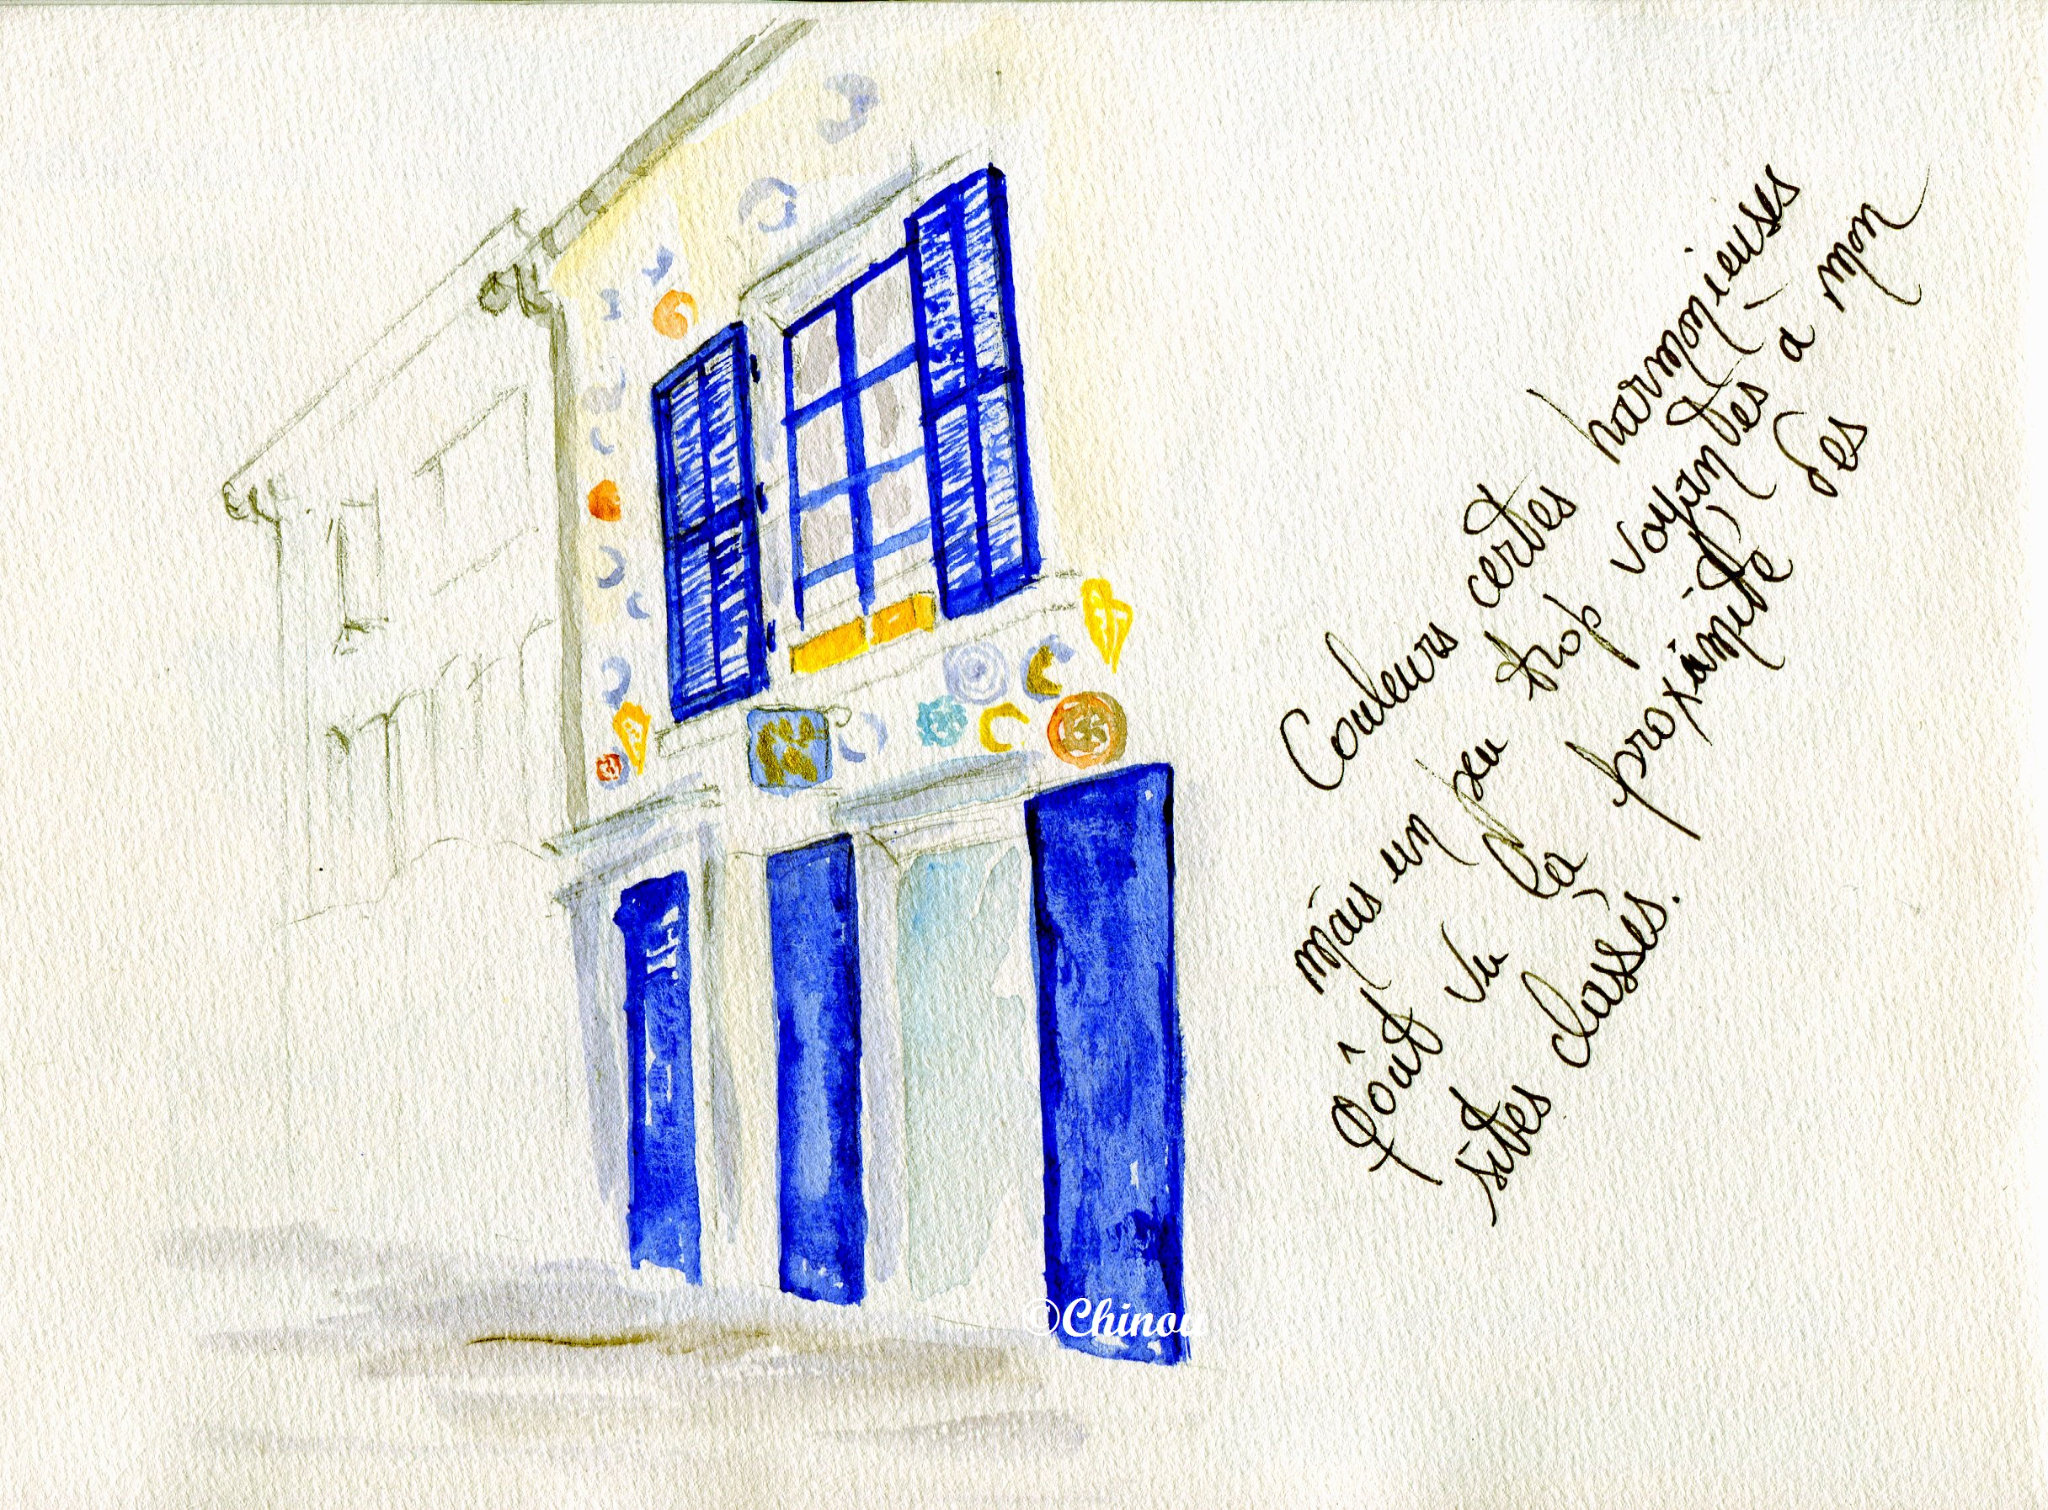 Couleurs certes harmonieuses
mais un peu trop voyantes à mon
goût vu la proximité des
sites classés.
©Chinou